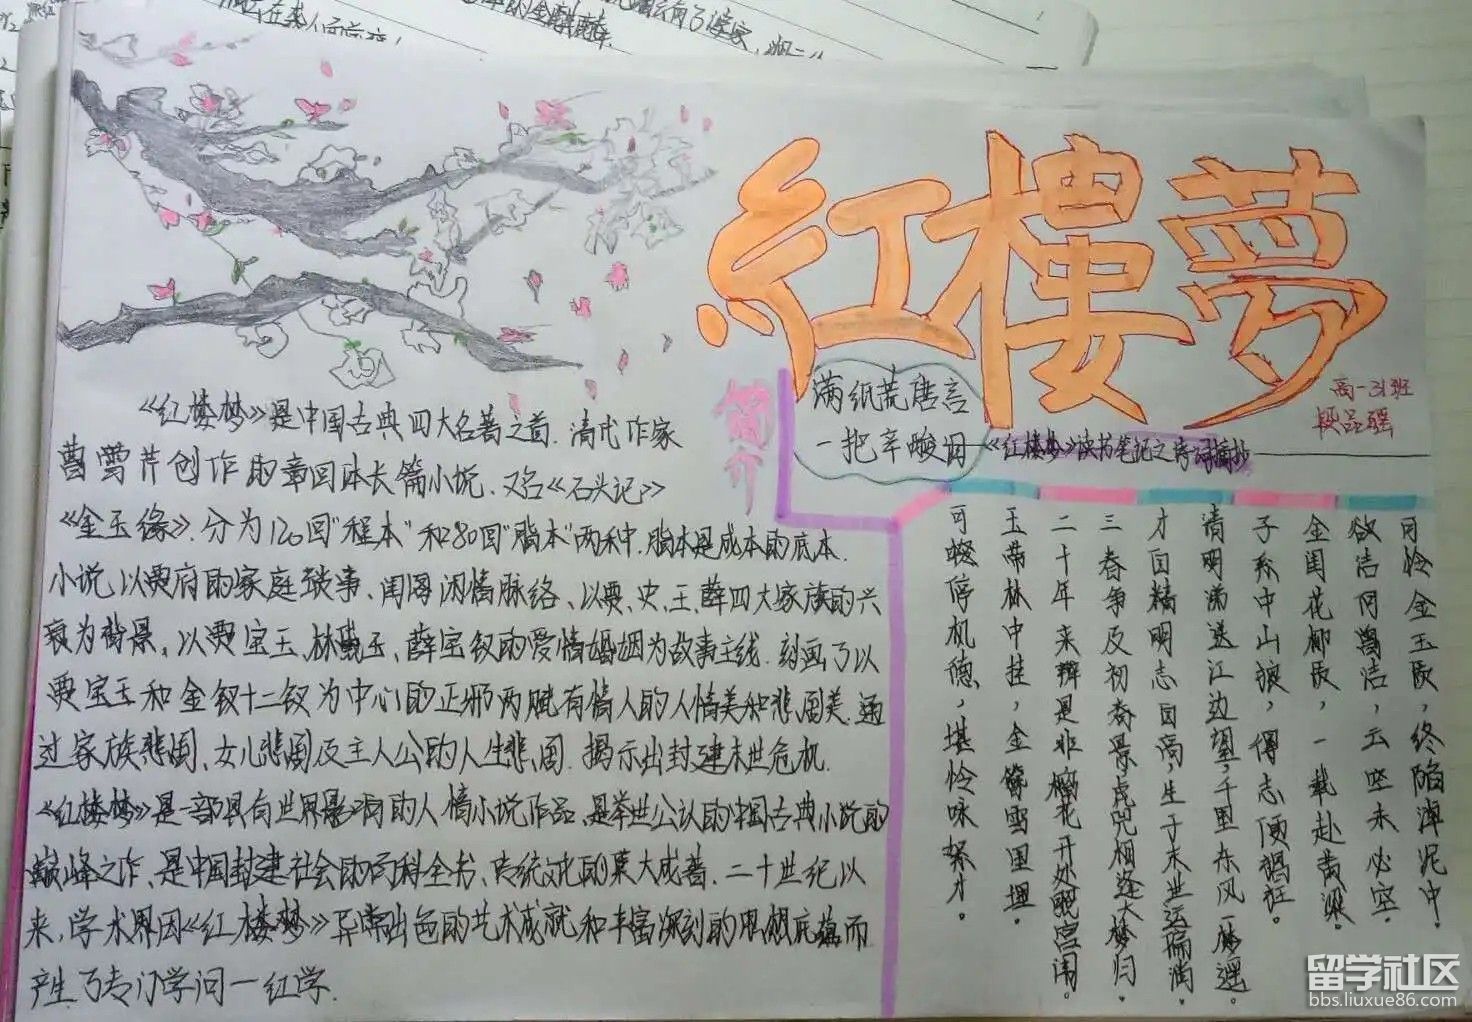 紅樓夢
高一31班
简介
满纸荒唐言
一把辛酸泪
《红楼梦》读书笔记之诗词摘抄
《红楼梦》是中国古典四大名著之首.清代作家
曹雪芹创作的章回体长篇小说.又名《石头记》
《金玉缘》.分为120回"程本"和80回"脂本"两种.脂本是成本的底本.
小说以贾府的家庭琐事、闺阁闲情脉络、以贾、史、王、薛四大家族的兴
衰为背景，以贾宝玉、林黛玉、薛宝钗的爱情婚姻为故事主线.刻画了以
贾宝玉和金钗十二钗为中心的正邪两赋有情人的人情美和悲剧美.通
过家族悲剧、女儿悲剧及主人公的人生悲剧.揭示出封建末世危机.
《红楼梦》是一部具有世界影响的人情小说作品,是举世公认的中国古典小说的
巅峰之作、是中国封建社会的百科全书、传统文化的集大成者.二十世纪以
来,学术界因《红楼梦》异常出色的艺术成就和丰富深刻的思想底蕴而
产生了专门学问一红学.
可怜金玉质，终陷淖泥中。
欲洁何曾洁，云空未必空。
金闺花柳质，一载赴黄粱。
子系中山狼，得志便猖狂。
清明涕送江边望，千里东风一梦遥。
才自精明志自高，生于末世运偏消。
三春争及初春景，虎兕相逢大梦归。
二十年来辨是非，榴花开处照宫闱。
玉带林中挂，金簪雪里埋。
可叹停机德，堪怜咏絮才。
留学社区
bbs.liuxue86.com